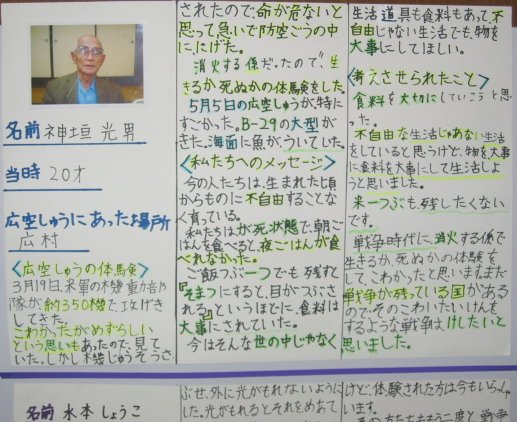 名前 神垣 光男
当時 20才
広空しゅうにあった場所
広村
<広空しゅうの体験>
3月19日米軍の機動部
隊が約350機で攻げき
してきた。
こわかったがめずらしい
という思いもあったので、見て
いた。しかし機じゅうそうさ
されたので、命が危ないと
思って急いで防空ごうの中
に、にげた。
消火する係だったので、生
きるか死ぬかの体験をした。
5月5日の広空しゅうが、特に
すごかった。B-29の大型が
きた。海面に魚が、ういていた。
<私たちへのメッセージ>
今の人たちは、生まれた頃
からものに不自由することな
く育っている。
私たちはが死状態で、朝ご
はんを食べると、夜ごはんが食
べれなかった。
ご飯つぶ一つでも残すと
「そまつにすると、目がつぶさ
れる」というほどに、食料は
大事にされていた。
今はそんな世の中じゃなく
生活道具も食料もあって、不
自由じゃない生活でも、物を
大事にしてほしい。
<考えさせられたこと>
食料を大切にしていこうと思
った。
不自由な生活じゃあない生活
をしていると思うけど、物を大事
に食料を大事にして生活しよ
うと思いました。
米一つぶも残したくない
です。
戦争時代に、消火する係で
生きるか、死ぬかの体験を
して、こわかったと思います。まだ
戦争が残っている国がある
ので、そのこわいたいけんを
するような戦争は、けしたいと
思いました。
名前 水本しょうこ
ぶせ、外に光がもれないように
した。光がもれるとそれをめあて
けど、体験された方は今もいらっしゃ
います。